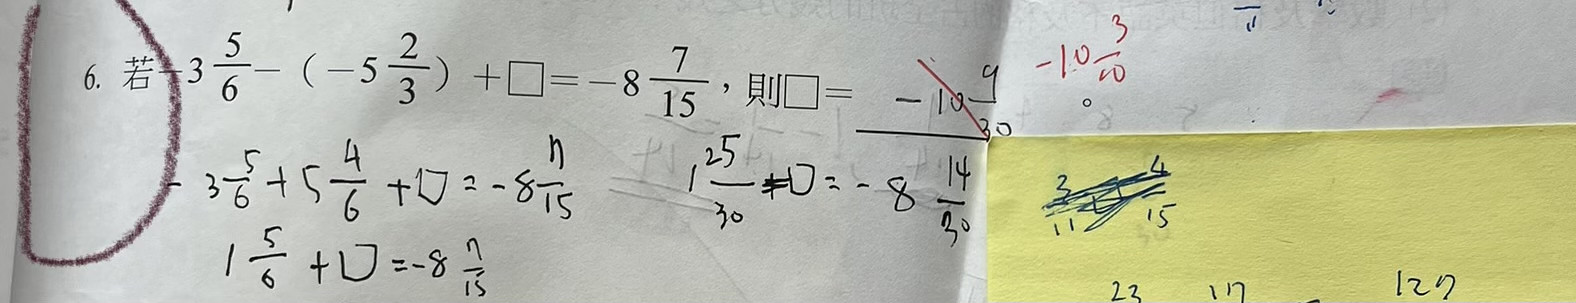 6. 若 -3 5/6 - (-5 2/3) + □ = -8 7/15，則□= -10 9/30 。
-10 3/10
- 3 5/6 + 5 4/6 + □ = -8 7/15
1 25/30 + □ = - 8 14/30
1 5/6 + □ = -8 7/15
4/15
23 17 127